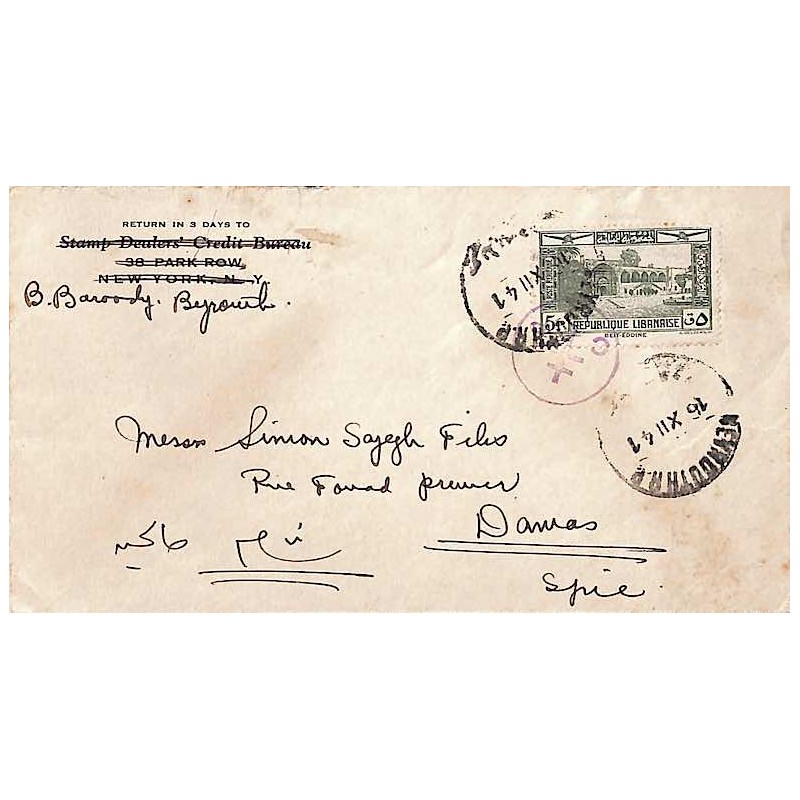 RETURN IN 3 DAYS TO
Stamp Dealers' Credit Bureau
38 PARK ROW,
NEW YORK, N. Y
B. Baroody. Beyrouth.
XII 41
5P REPUBLIQUE LIBANAISE ٥ق
BEIT-EDDINE
16 XII 41
BEYROUTH R.P
Messrs Simon Sayegh Fils
Rue Fouad premier
Damas
شام
Syrie